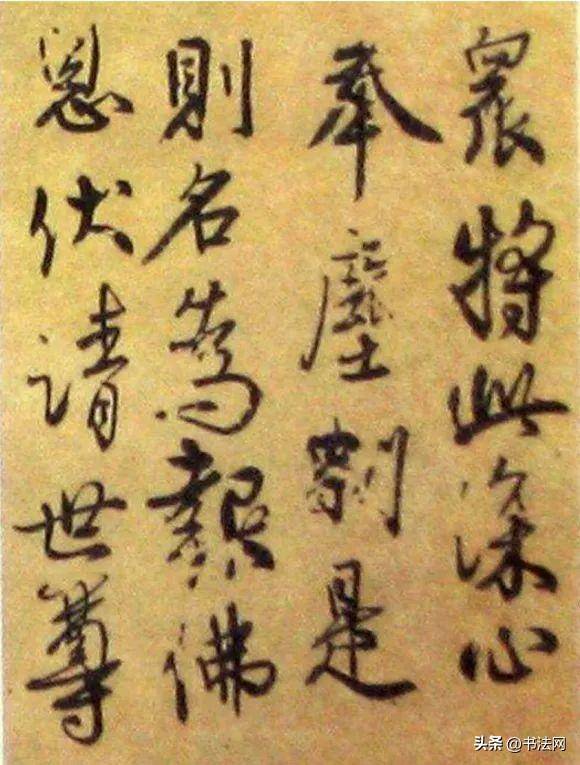 眾將此深心
奉塵刹是
則名為報佛
恩伏請世尊
头条 @书法网